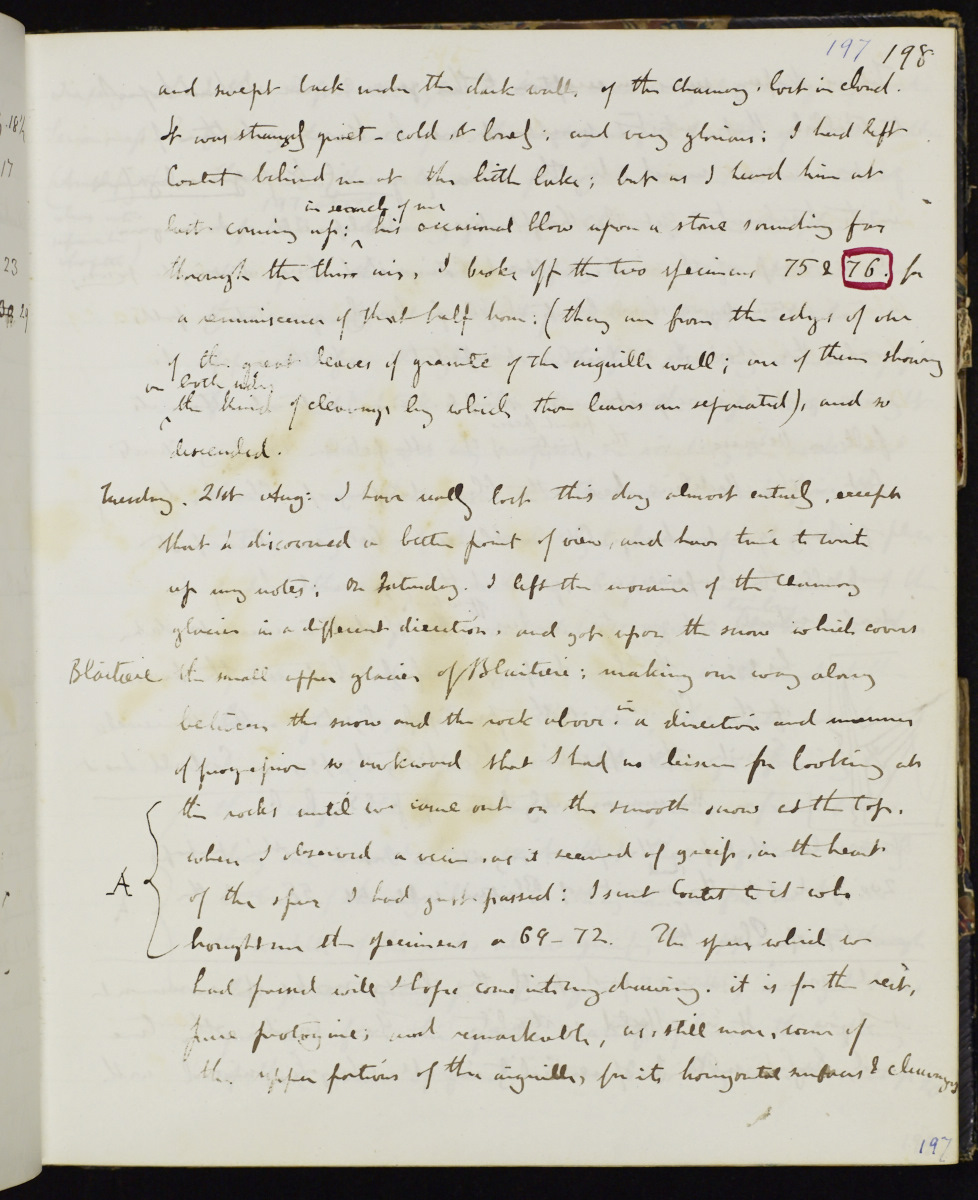 197 198
and swept back under the dark wall, of the Charmoz, lost in cloud.
It was strangely quiet - cold, & lonely; and very glorious: I had left
Coutet behind me at the little lake; but as I heard him at
in search of me
last coming up; his occasional blow upon a stone sounding far
through the thin air, I broke off the two specimens 75 & 76. for
a reminiscence of that half hour: (they are from the edges of one
of the great leaves of granite of the aiguille wall; one of them showing
on both sides
the kind of cleavage by which those leaves are separated), and so
descended.
Tuesday. 21st Aug: I have really lost this day almost entirely, except
that I discovered a better point of view, and have time to write
up my notes; On Saturday. I left the moraine of the Charmoz
glacier in a different direction, and got upon the snow which covers
Blaitiere the small upper glacier of Blaitiere; making our way along
between the snow and the rock above: in a direction and manner
of progression so awkward that I had no leisure for looking at
the rocks until we came out on the smooth snow at the top.
when I observed a vein, as it seemed of gneiss, in the heart
A of the spur I had just passed: I sent Coutet to it who
brought me the specimens a 69-72. The spur which we
had passed will I hope come into my drawing. it is for the rest,
pure protogine; and remarkable, as, still more, some of
the upper portions of the aiguille, for its horizontal surfaces & cleavages
197